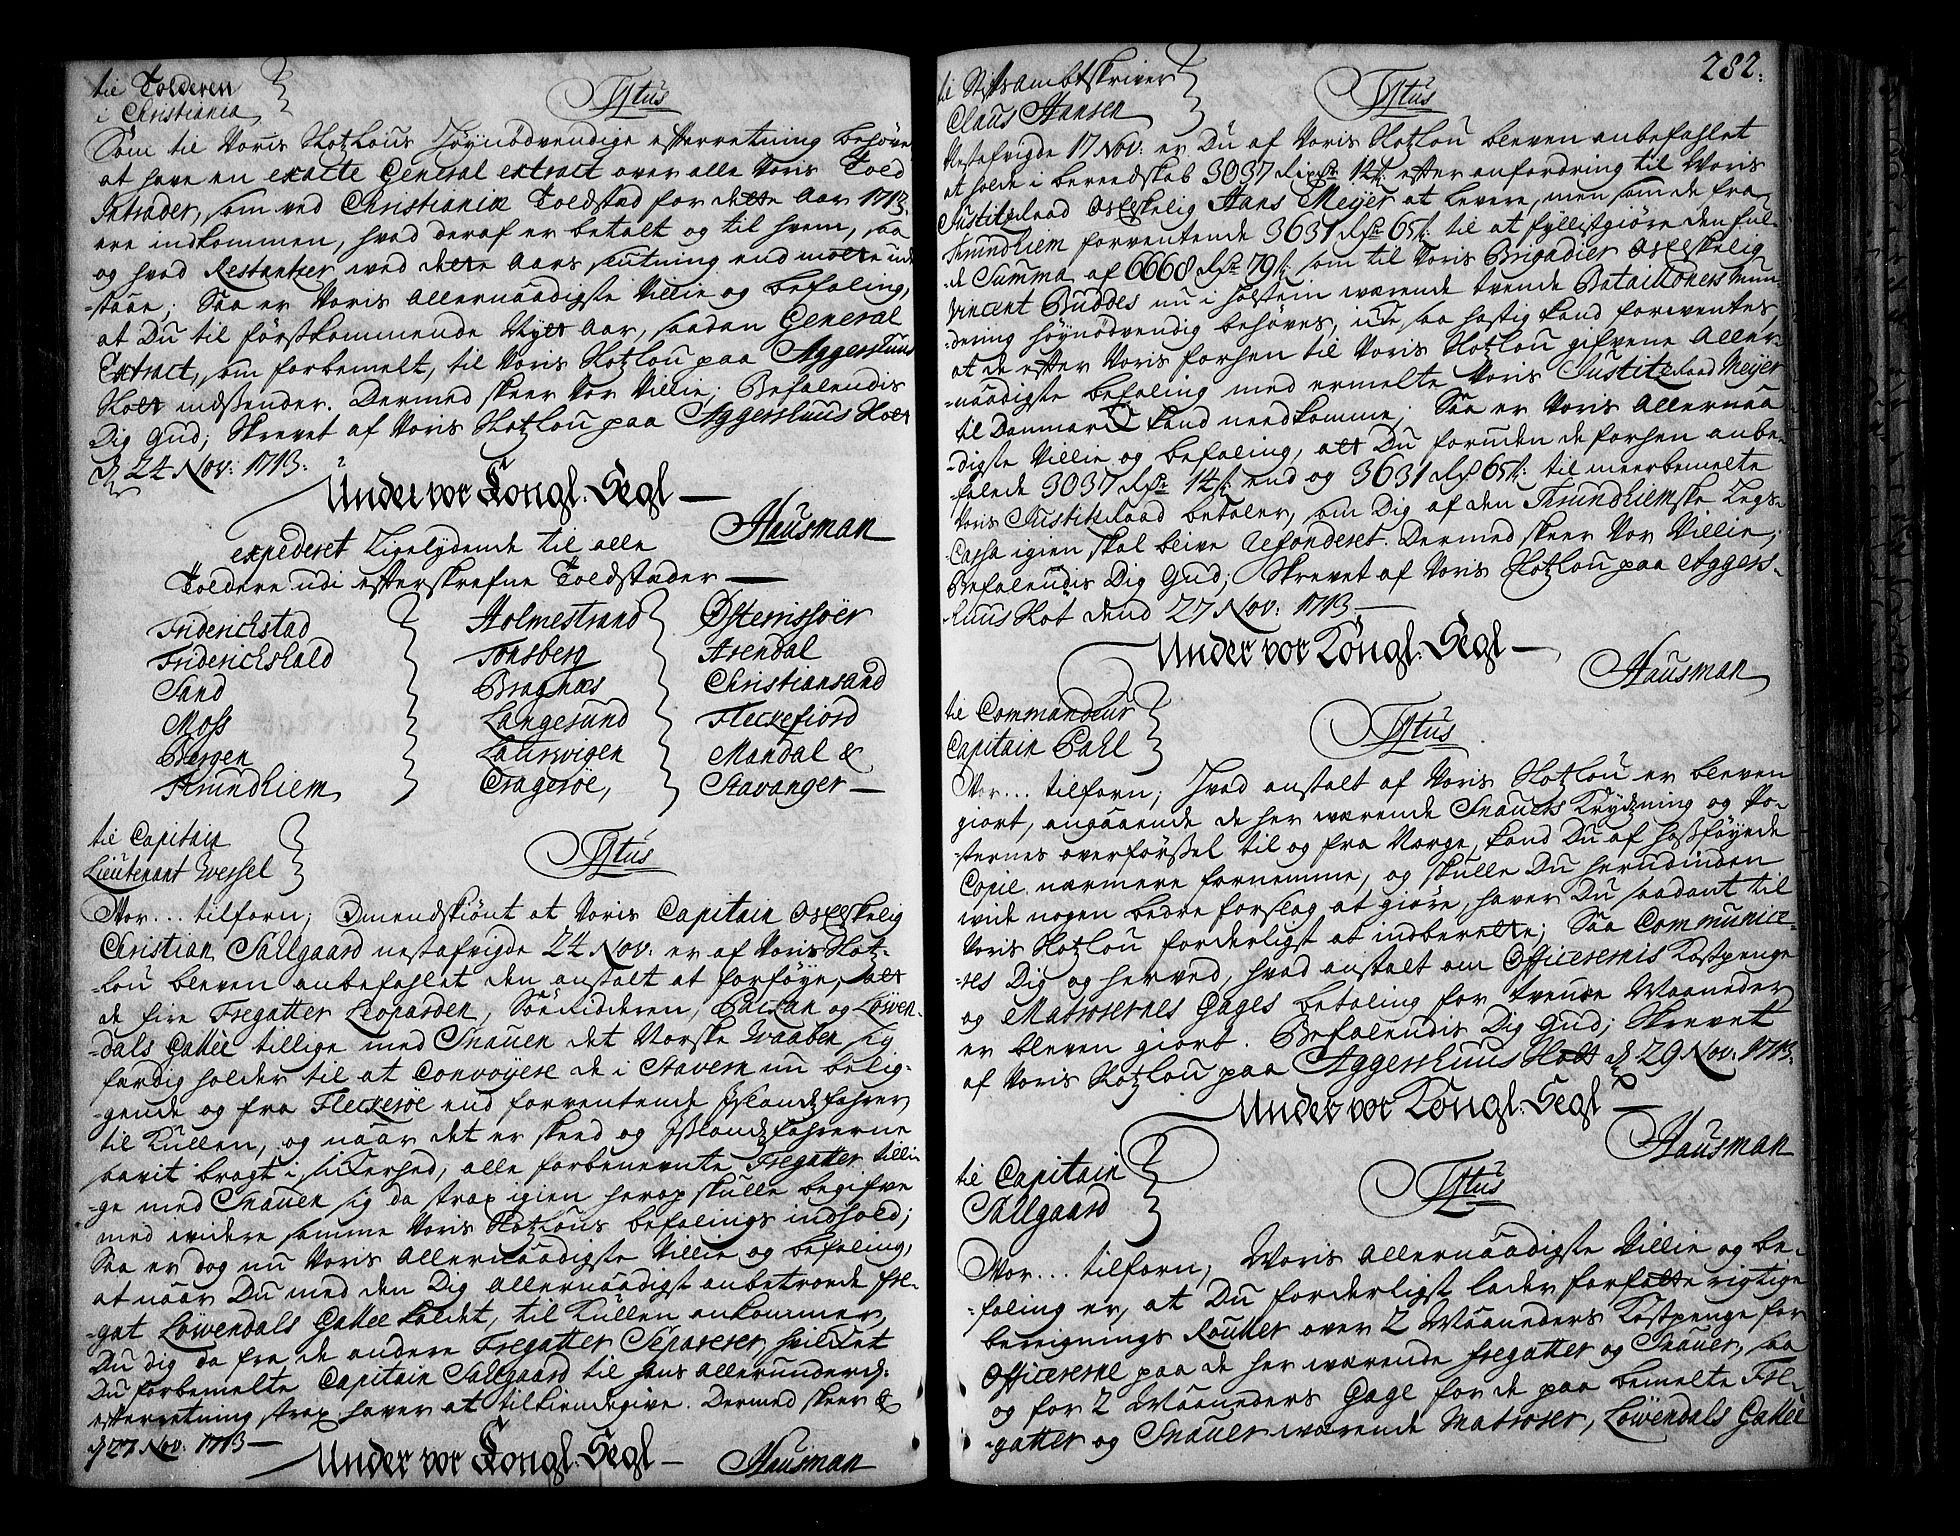 til Tolderen
i Christiania
Tytus
Som til Voris Slotzlous höynödvendige efterretning behöves
at have en exacte General extract over alle Voris Told
Intrader, som ved Christianiæ Toldstad for dette Aar 1713.
ere indkommen, hvad deraf er betalt og til hvem, saa
og hvad Restantzer, wed dette Aars slutning end motte ude
-staae; Saa er Voris Allernaadigste Villie og befaling,
at Du til förstkommende Nyet Aar, saadan General
Extract, som forbemelt, til Voris Slotzlou paa Aggershuus
Slott indssender. Dermed skeer Vor Villie; Befalendis
Dig Gud; Skrevet af Voris Slotzlou paa Aggershuus Slott
d. 24 Nov: 1713:
Under vor Kongl. Segl
Hausman
expederet Ligelydende til alle
Toldere udi efterskrefne Toldstæder
Friderichstad
Friderichshald
Sand
Moss
Bergen
Trundhiem
Holmestrand
Tonsberg
Bragnæs
Langesund
Laurvigen
Cragerøe,
Østerrissøer
Arendal
Christiansand
Fleckefiord
Mandal &
Stavanger
til Capitain
Lieutenant Wessel
Tytus
Vor... tilforn; Omendskiönt at Voris Capitain Os Elskelig
Christian Sallgaard nestafvigte 24 Nov: er af Voris Slotz-
-lou bleven anbefahlet den anstalt at forföye, att
de fire Fregatter Leoparden, Söe Ridderen, Packan og Löwen-
-dals Gallei tillige med Snauen det Norske Waaben sig
færdig holder til at Convoyere de i Stavern nu belig-
-gende og fra Fleckerøe end forventende Islandsfahrer
til Kullen, og naar det er skeed og Islandsfahrerne
bavit bragt i sikerhed, alle forbenevnte Fregatter tilli-
-ge med Snauen sig da strax igien herop skulle begifve
med videre samme Voris Slotzlous befalings indhold;
Saa er dog nu Voris Allernaadigste Villie og befaling,
at naar Du med den Dig Allernaadigst anbetroede Fre-
-gat Löwendals Gallei kaldet, til Kullen ankommer,
Du dig da fra de andre Fregatter Separerer, hvilcket
Du forbemelte Capitain Sallgaard til hans allerunderd:
efterretning strax haver at tilkiendegive. Dermed skeer &
d. 27 Nov: 1713
Under vor Kongl. Segl
Hausman
282:
til Stiftsambtskriver
Claus Hansen
Tytus
Nestafvigte 17 Nov: er Du af Voris Slotzlou bleven anbefahlet
at holde i beredskab 3037 Rixdr 14 s. efter anfordring til Woris
Justitzraad Os Elskelig Hans Meyer at levere, men som de fra
Trundhiem forventende 3631 Rdr 65 s. til at fyllistgiöre den ful-
-de Summa af 6668 Rdr 79 s. som til Voris Brigadier Os Elskelig
Vincent Buddes nu i Holstein wærende tvende Batailloners Mun-
-dering höynödvendig behöves, icke saa hastig kand forventes
at de efter Voris forhen til Voris Slotzlou gifvene Aller-
-naadigste befaling med ermelte Voris Justitzraad Meyer
til Danmarck kand needkomme. Saa er Voris Allernaa-
-digste Villie og befaling, att Du foruden de forhen anbe-
-falede 3037 Rdr 14 s. end og 3631 Rdr 65 s. til meerbemelte
Voris Justitzraad betaler, som Dig af den Trundhiemske Zegs-
Cassa igien skal blive Refonderet. Dermed skeer Vor Villie;
Befalendis Dig Gud; Skrevet af Voris Slotzlou paa Aggers-
huus Slot dend 27 Nov: 1713
Under vor Kongl. Segl
Hausman
til Commandeur
Capitain Pahl
Tytus
Vor... tilforn; Hvad anstalt af Voris Slotzlou er bleven
giort, angaaende de her wærende Snauers Krydzning og Po-
-sternes overförssel til og fra Norge, kand Du af hossföyede
Copie nærmere fornemme, og skulle Du herudinden
wide nogen bedre forslag at giöre, haver Du saadant til
Voris Slotzlou forderligst at indberette; Saa Communice-
-res Dig og herved, hvad anstalt om Officerernis Kostpenge
og Matrosernes Gages betaling for tvende Maaneder
er bleven giort. Befalendis Dig Gud; Skrevet
af Voris Slotzlou paa Aggershuus Slott d. 29 Nov: 1713.
Under vor Kongl. Segl
Hausman
til Capitain
Sallgaard
Tytus
Vor... tilforn; Woris Allernaadigste Villie og be-
-faling er, at Du forderligst lader forfatte rigtige
beregnings Rouller over 2 Maaneders Kostpenge for
Officererne paa de her wærende Fregatter og Snauer, saa
og for 2 Maaneders Gage for de paa bemelte Fre-
-gatter og Snauer wærende Matroser, Löwendals Gallei